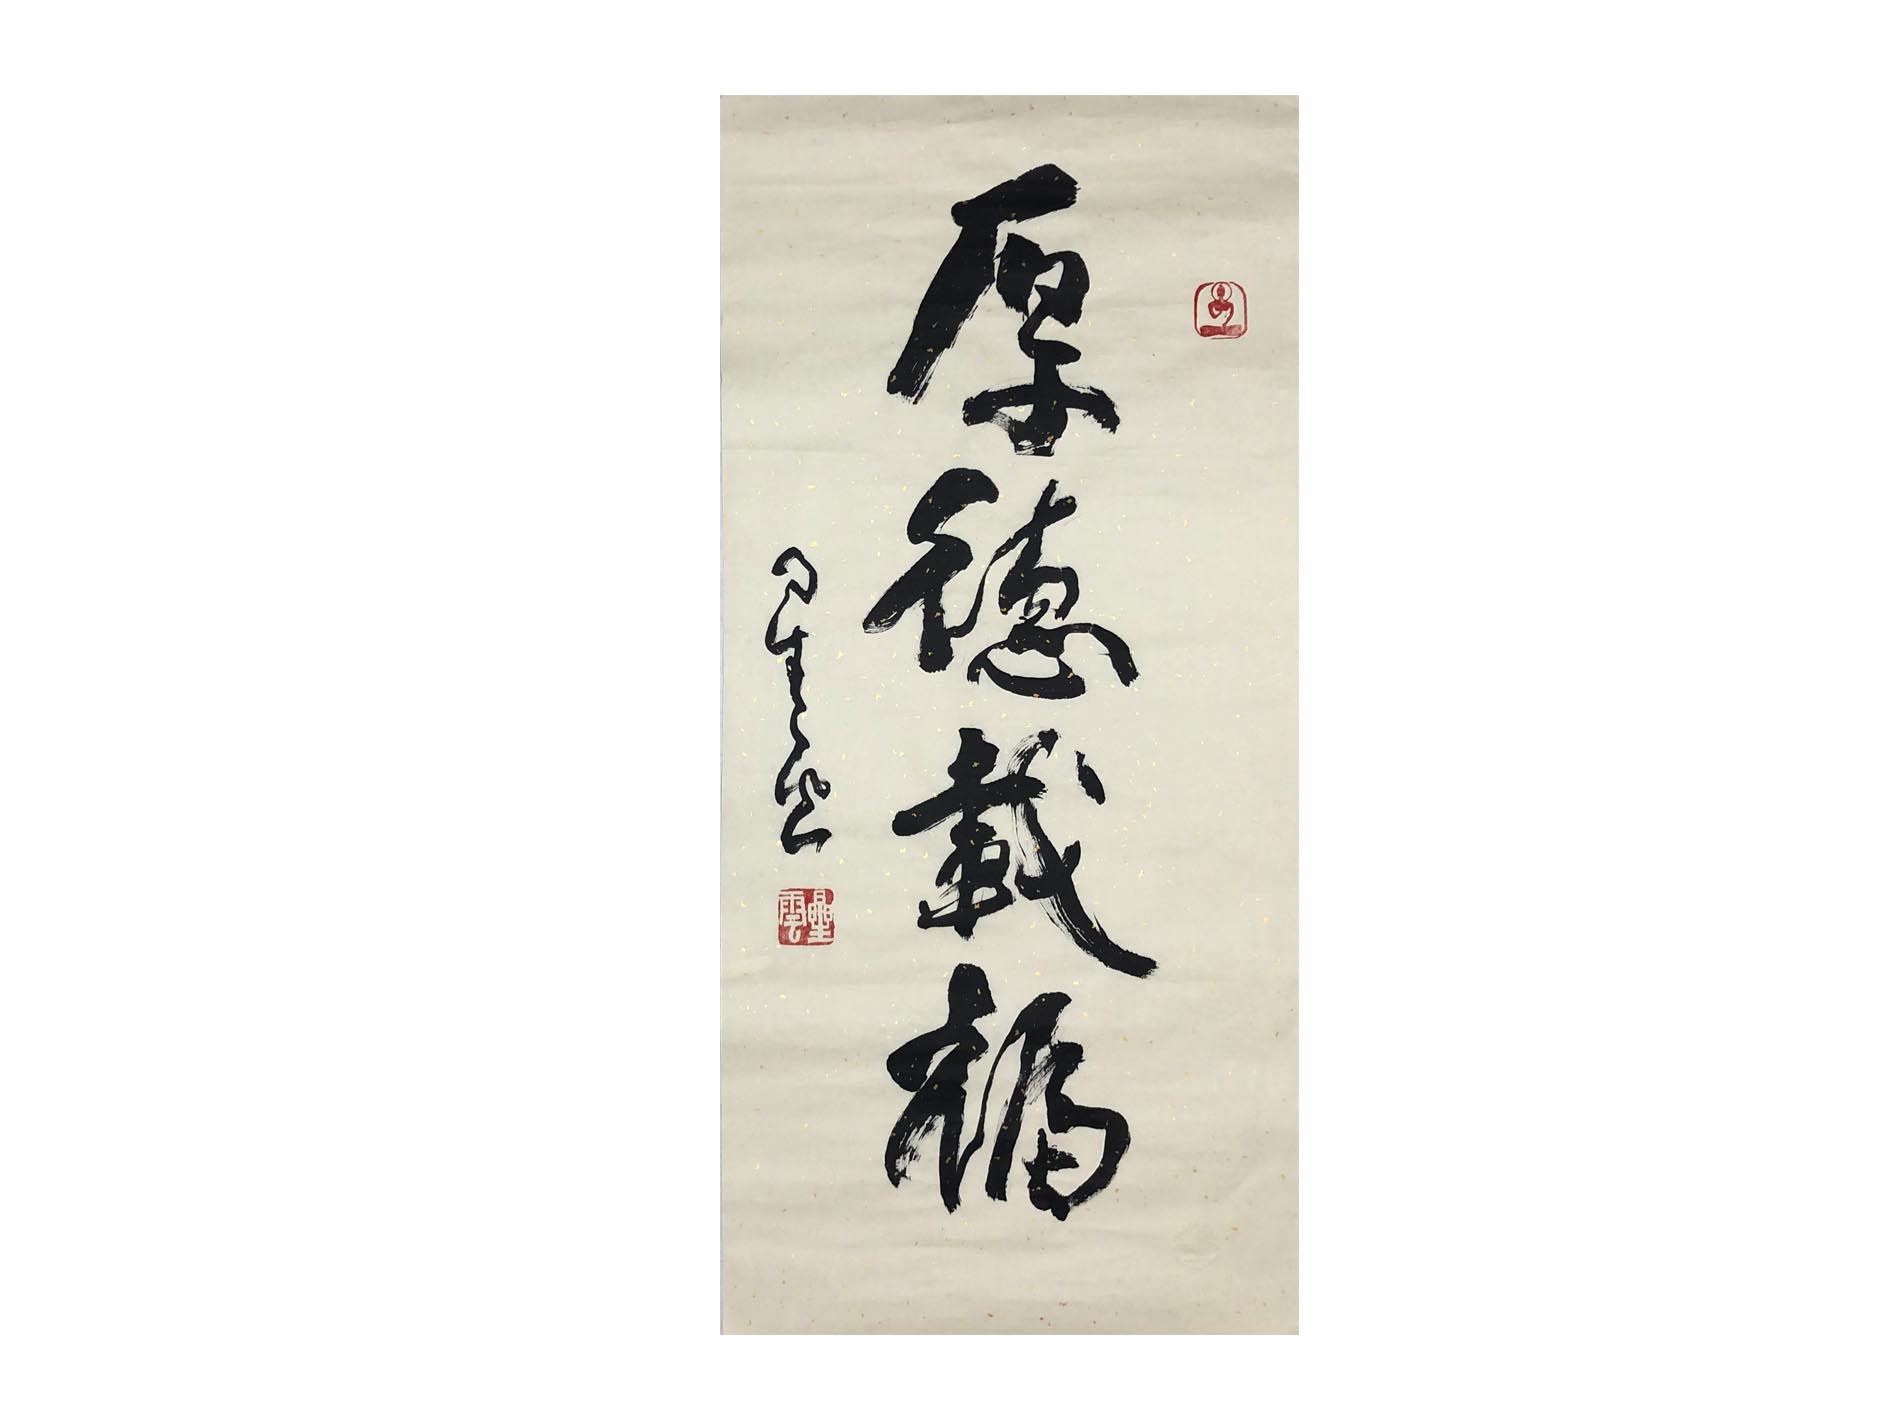 厚德載福
星雲
星雲